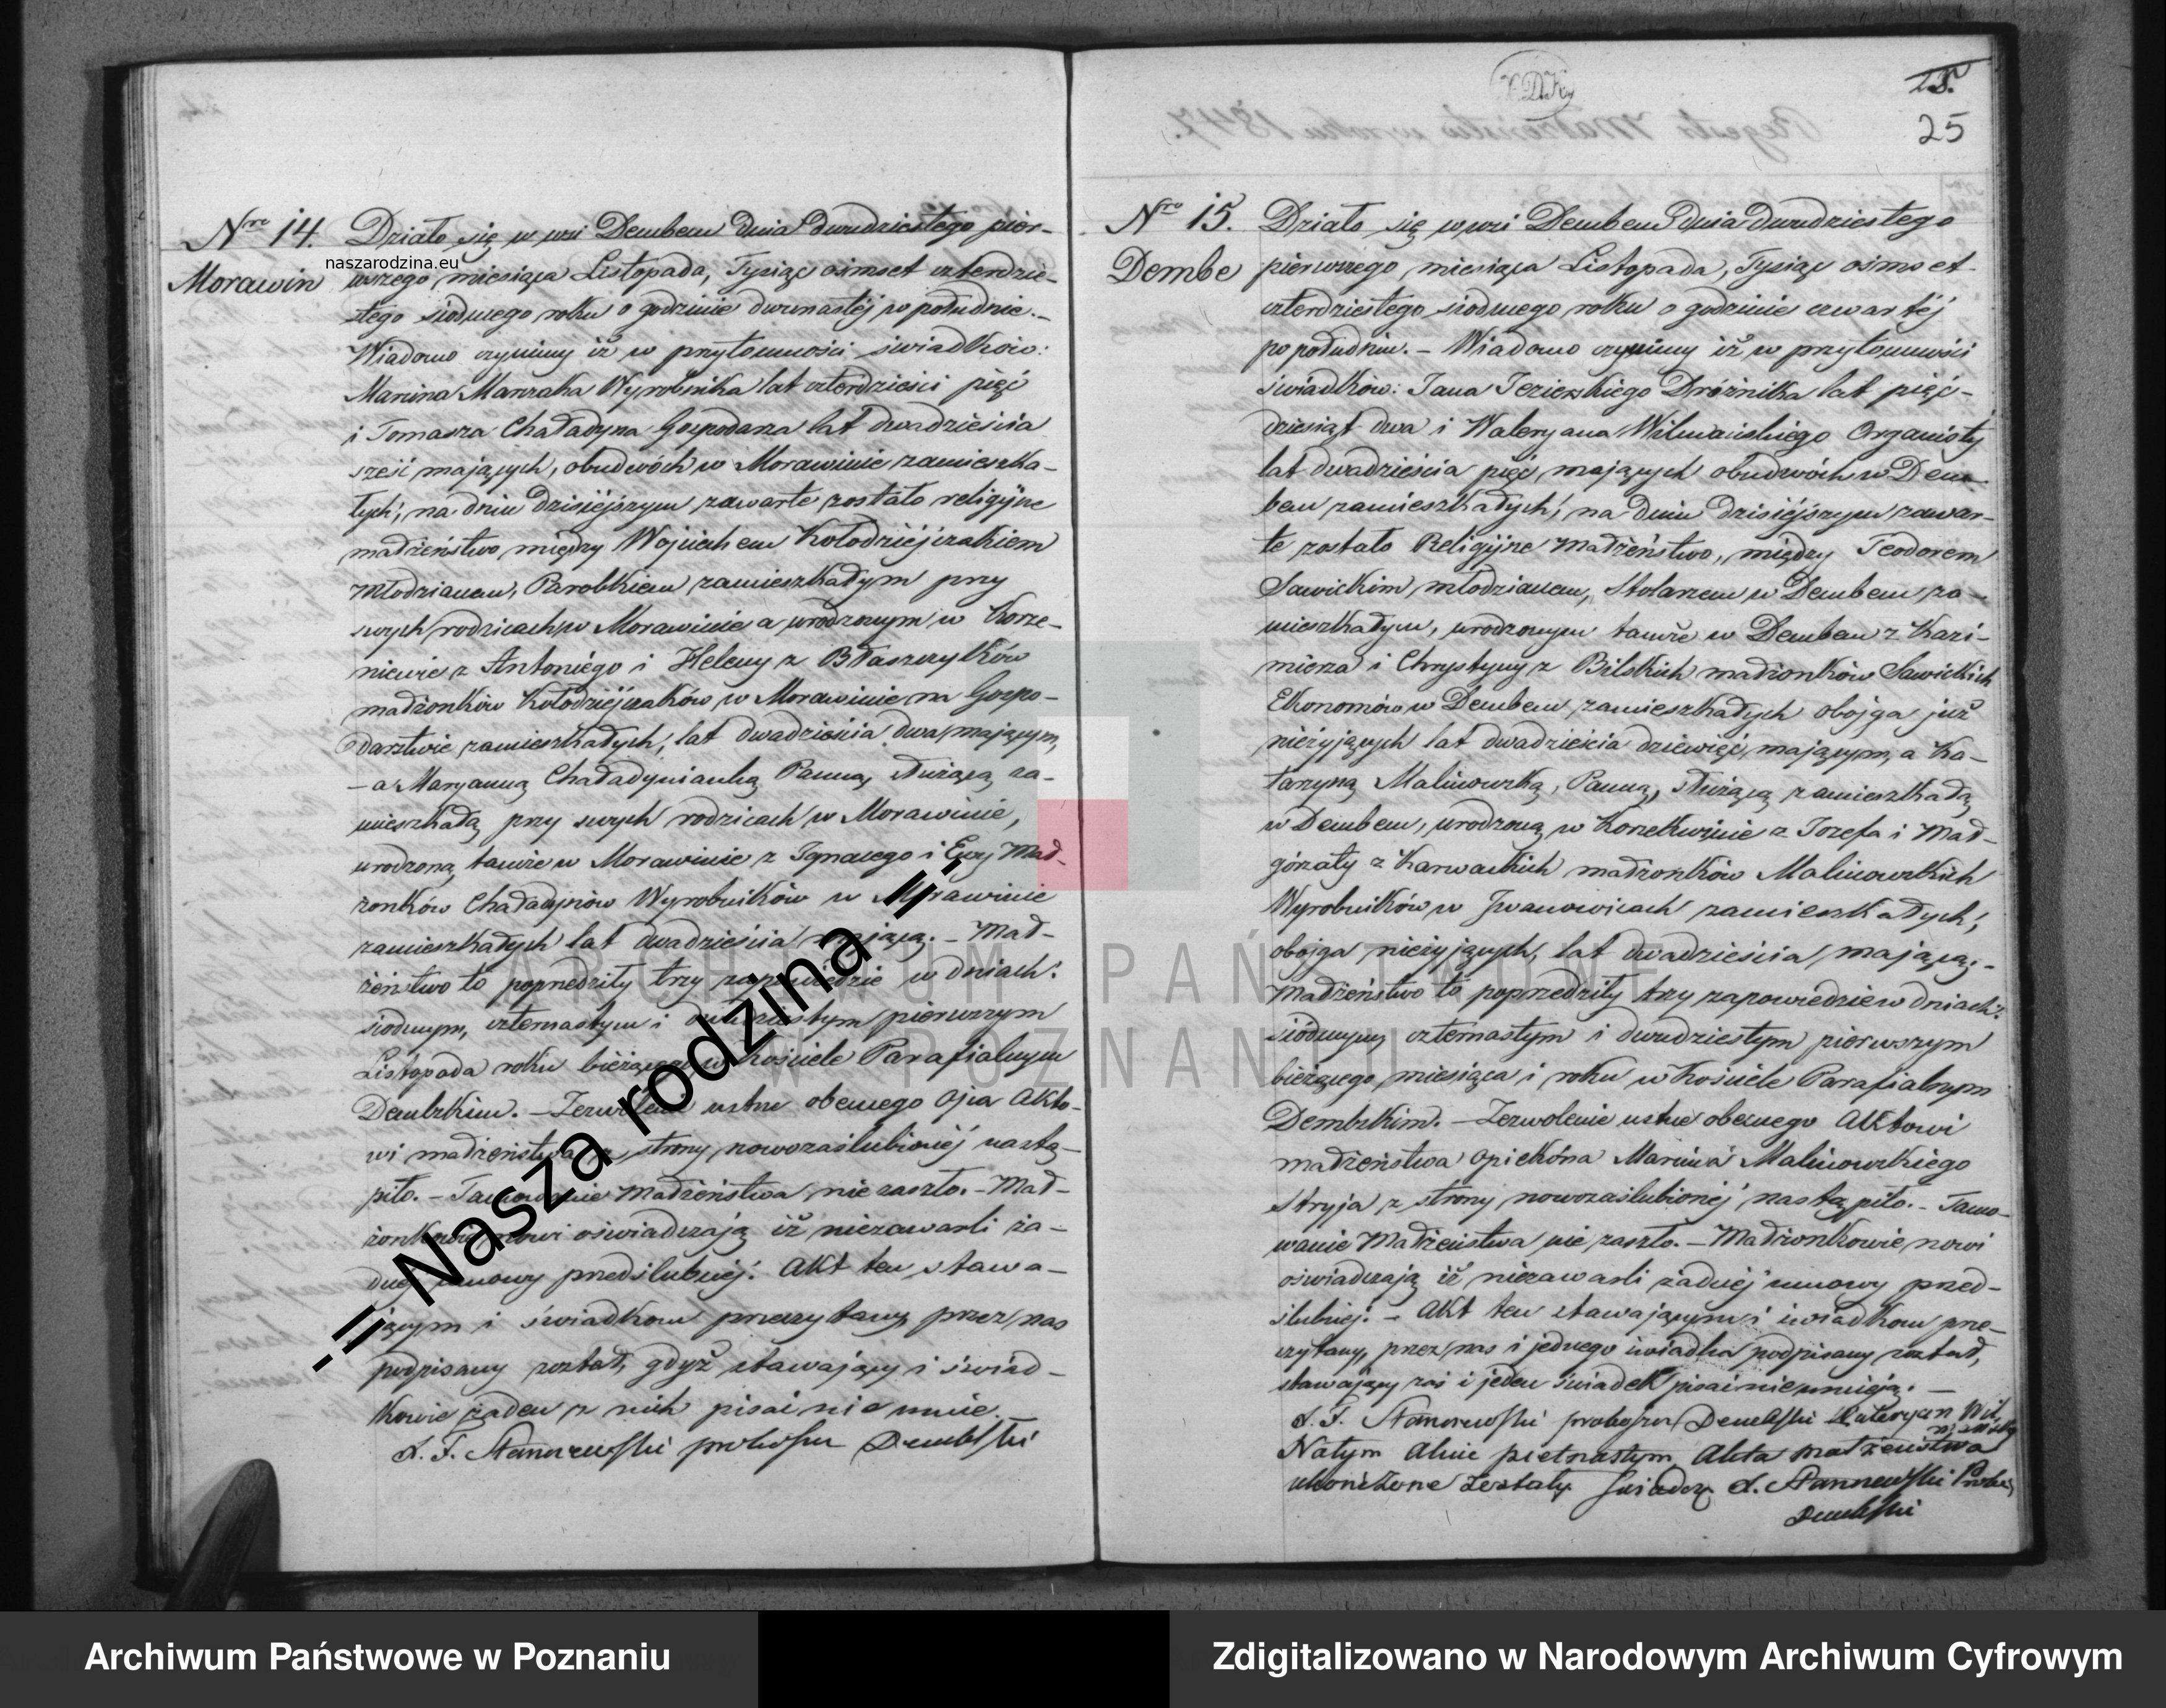 Nro 14.
Morawin
Działo się w wsi Dembem dnia dwudziestego pier-
wszego miesiąca Listopada, Tysiąc ośmset czterdzie-
stego siódmego roku o godzinie dwunastéj w południe.-
Wiadomo czynimy iż w przytomności świadków:
Marcina Marczaka Wyrobnika lat czterdzieści pięć
i Tomasza Chaładyna Gospodarza lat dwadzieścia
sześć mających, obudwóch w Morawinie zamieszka-
łych; na dniu dzisiéjszym zawarte zostało religijne
małżeństwo między Wojciechem Kołodziéjczakiem
Młodzianem, Parobkiem zamieszkałym przy
swych rodzicach w Morawinie a urodzonym w Korze-
niewie z Antoniégo i Heleny z Błaszczyków
małżonków Kołodziéjczaków w Morawinie na Gospo-
darstwie zamieszkałych, lat dwadzieścia dwa mającym,
- a Maryanną Chaładynianką Panną, służącą za-
mieszkałą przy swych rodzicach w Morawinie,
urodzoną tamże w Morawinie z Ignacego i Ewy Mał-
żonków Chaładynów Wyrobników w Morawinie
zamieszkałych lat dwadzieścia mającą. - Mał-
żeństwo to poprzedziły trzy zapowiedzie w dniach:
siódmym, czternastym i dwudziestym pierwszym
Listopada roku bieżącego w Kościele Parafialnym
Dembskim. - Zezwolenie ustne obecnego Ojca Akto-
wi małżeństwa ze strony nowozaślubionéj nastą-
piło. - Tamowanie Małżeństwa nie zaszło. - Mał-
żonkowie nowi oświadczają iż niezawarli ża-
dnéj umowy przedślubnéj. Akt ten stawa-
jącym i świadkom przeczytany przez nas
podpisany został, gdyż stawający i świad-
kowie żaden z nich pisać nie umie.
X. F. Stanczewski proboszcz Dembski
naszarodzina.eu
-=| Nasza rodzina |=-
25
Nro 15.
Dembe
Działo się w wsi Dembem dnia dwudziestego
pierwszego miesiąca Listopada, Tysiąc ośmset
czterdziestego siódmego roku o godzinie czwartéj
po południu. - Wiadomo czynimy iż w przytomności
świadków: Jana Jezierskiego Dróżnika lat pięć-
dziesiąt dwa i Waleryana Wilmańskiego Organisty
lat dwadzieścia pięć, mających obudwóch w Dem-
bem zamieszkałych; na dniu dzisiéjszym zawar-
te zostało Religijne Małżeństwo, między Teodorem
Sawickim młodzianem, Stolarzem w Dembem za-
mieszkałym, urodzonym tamże w Dembem z Kazi-
mierza i Chrystyny z Bilskich małżonków Sawickich
Ekonomów w Dembem zamieszkałych obojga już
nieżyjących lat dwadzieścia dziewięć mającym, a Ka-
tarzyną Malinowską, Panną, służącą zamieszkałą
w Dembem, urodzoną w Korzekwinie z Józefa i Mał-
górzaty z Karwackich małżonków Malinowskich
Wyrobników w Iwanowicach zamieszkałych;
obojga nieżyjących, lat dwadzieścia mającą.-
Małżeństwo to poprzedziły trzy zapowiedzie w dniach:
siódmym, czternastym i dwudziestym pierwszym
bieżącego miesiąca i roku w Kościele Parafialnym
Dembskim. - Zezwolenie ustne obecnego Aktowi
małżeństwa opiekóna Marcina Malinowskiego
Stryja z strony nowozaślubionéj nastąpiło. - Tamo-
wanie Małżeństwa nie zaszło. - Małżonkowie nowi
oświadczają iż niezawarli żadnéj umowy przed-
ślubnéj. - Akt ten stawającym i świadkom prze-
czytany, przez nas i jednego świadka podpisany został,
stawający zaś i jeden świadek pisać nie umieją. -
X. F. Stanczewski proboszcz Dembski Waleryan Wil
mański
Na tym Akcie pietnastym Akta małżeństwa
ukończone zostały świadczę X. Stanczewski Probosz
Dembski
ARCHIWUM PAŃSTWOWE
W POZNANIU
Archiwum Państwowe w Poznaniu
Zdigitalizowano w Narodowym Archiwum Cyfrowym